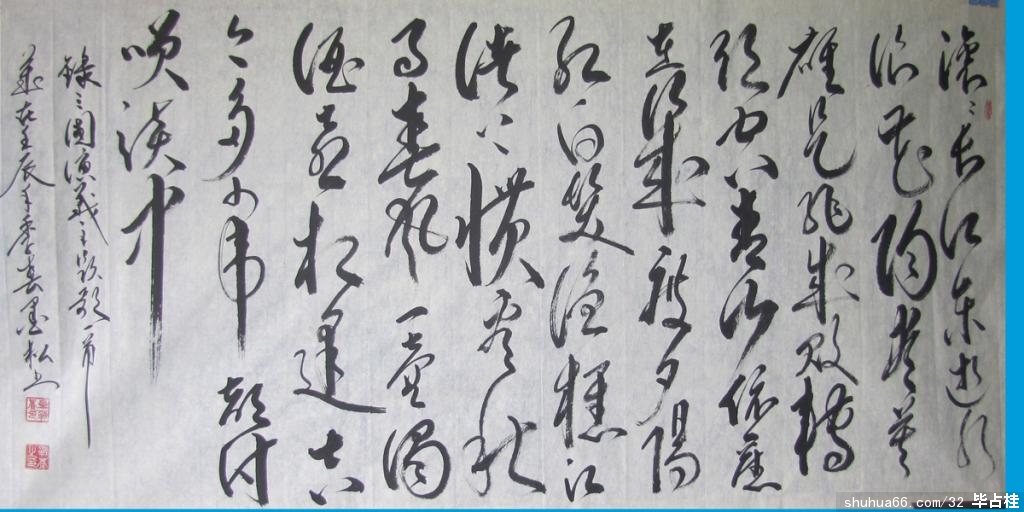 滚滚长江东逝水
浪花淘尽英
雄是非成败转
头空青山依旧
在几度夕阳
红白发渔樵江
渚上惯看秋
月春风一壶浊
酒喜相逢古
今多少事都付
笑谈中
录三国演义主题歌一首
岁在壬辰年季春墨松书
shuhua66.com/32 毕占桂